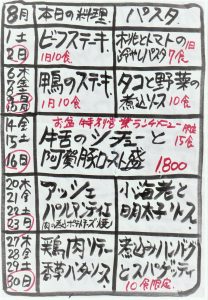 8月 本日の料理 パスタ
1土
2日
ビフステーキ
1日10食
桃とトマトの
冷やしパスタ 7食
6木
7金
8土
9日
鴨のステーキ
1日10食
タコと野菜の
煮込ソース 10食
14金
15土
16日
お盆特別営業ランチメニュー
限定
15食
牛舌のシチューと
阿賀豚ロースト盛
1800
20木
21金
22土
23日
アッシェ
パルマンティエ
小海老と
明太子ソース
27木
28金
29土
30日
鶏肉ソテー
香草バターソース
煮込みハンバーグ
とスパゲッティ
10食限定